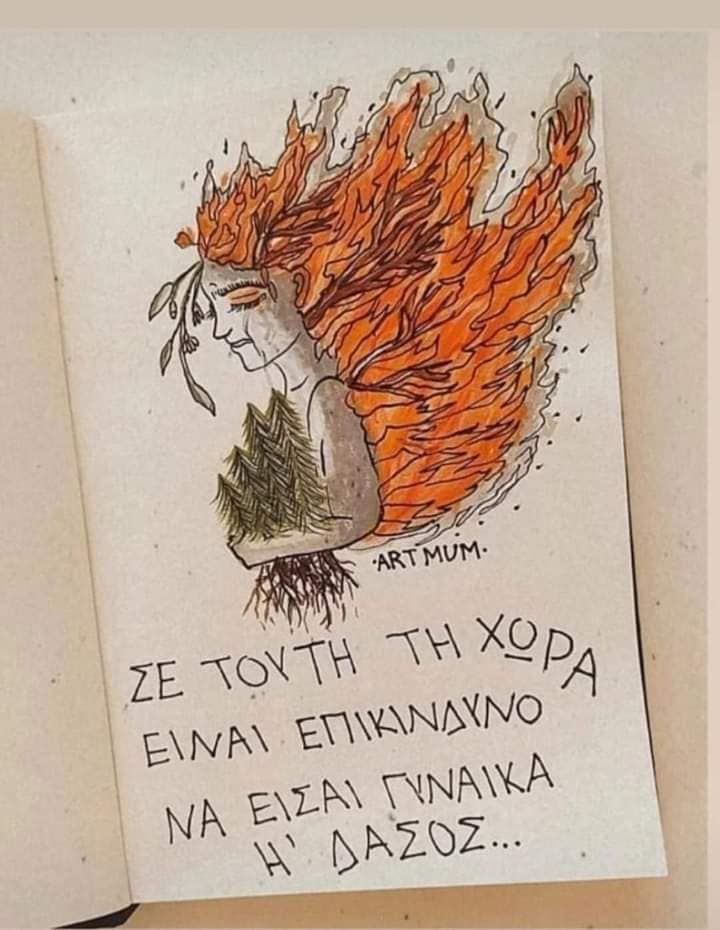 ·ART MUM·
ΣΕ ΤΟΥΤΗ ΤΗ ΧΩΡΑ
ΕΙΝΑΙ ΕΠΙΚΙΝΔΥΝΟ
ΝΑ ΕΙΣΑΙ ΓΥΝΑΙΚΑ
Η' ΔΑΣΟΣ...